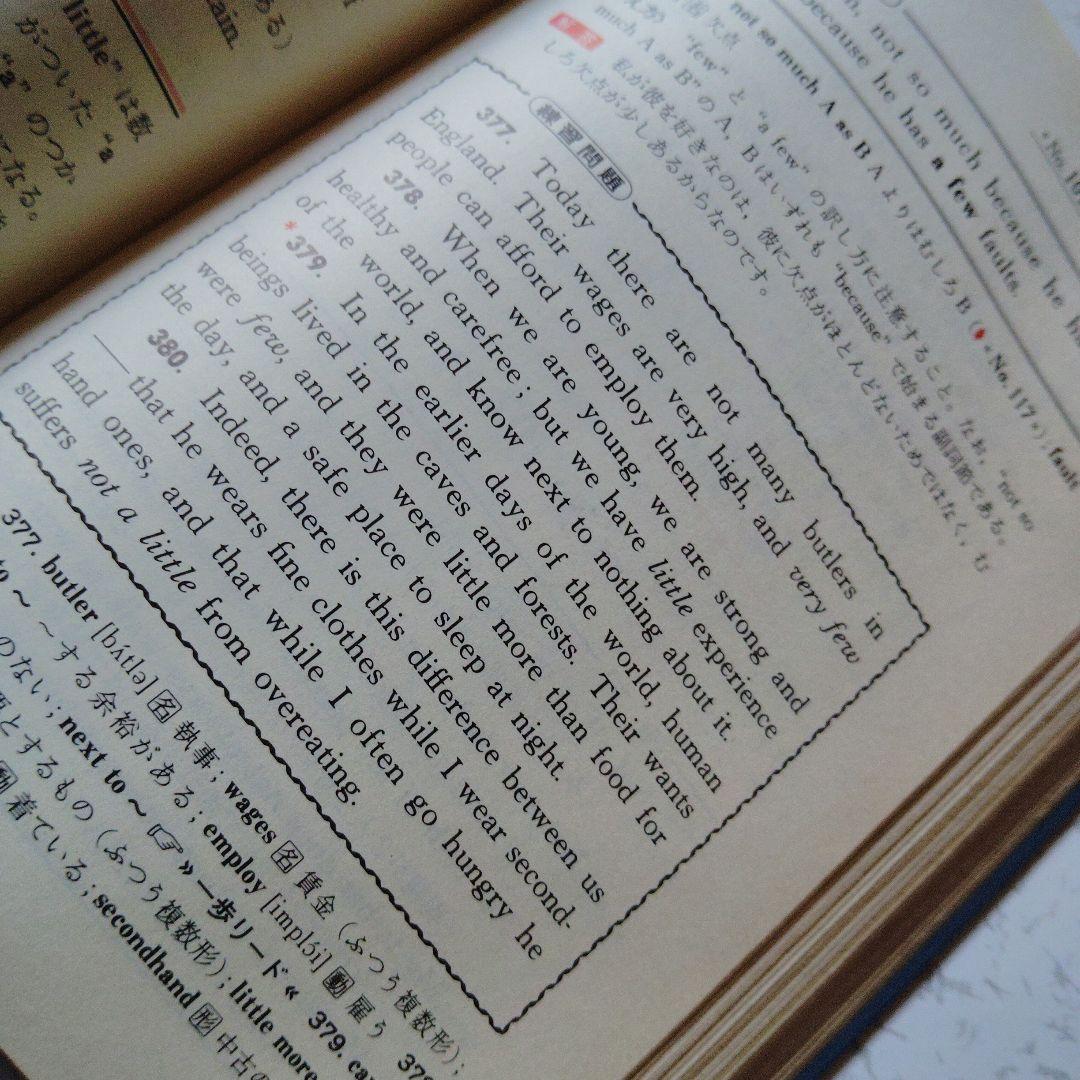 little" は数
がついた "a
"a" のつか
になる。
ある)
ain.
, not so much because he ha
because he has a few faults.
not so much A as B A よりはむしろ B (« No. 117 »), fault
"few" と "a few" の訳し方に注意すること。なお, "not so
much A as B" の A, B はいずれも "because" で始まる副詞節である。
解答 私が彼を好きなのは, 彼に欠点がほとんどないためではなく, む
しろ欠点が少しあるからなのです。
練習問題
377. Today there are not many butlers in
England. Their wages are very high, and very few
people can afford to employ them.
378. When we are young, we are strong and
healthy and carefree; but we have little experience
of the world, and know next to nothing about it.
*379. In the earlier days of the world, human
beings lived in the caves and forests. Their wants
were few, and they were little more than food for
the day, and a safe place to sleep at night.
380. Indeed, there is this difference between us
— that he wears fine clothes while I wear second-
hand ones, and that while I often go hungry he
suffers not a little from overeating.
377. butler [bʌ́tlə] 名 執事; wages 名 賃金 (ふつう複数形);
to ~ ~する余裕がある; employ [implɔ́i] 動 雇う
のない; next to ~ ☞ »一歩リード« 379.
とするもの (ふつう複数形); little more
動 着ている; secondhand 形 中古の